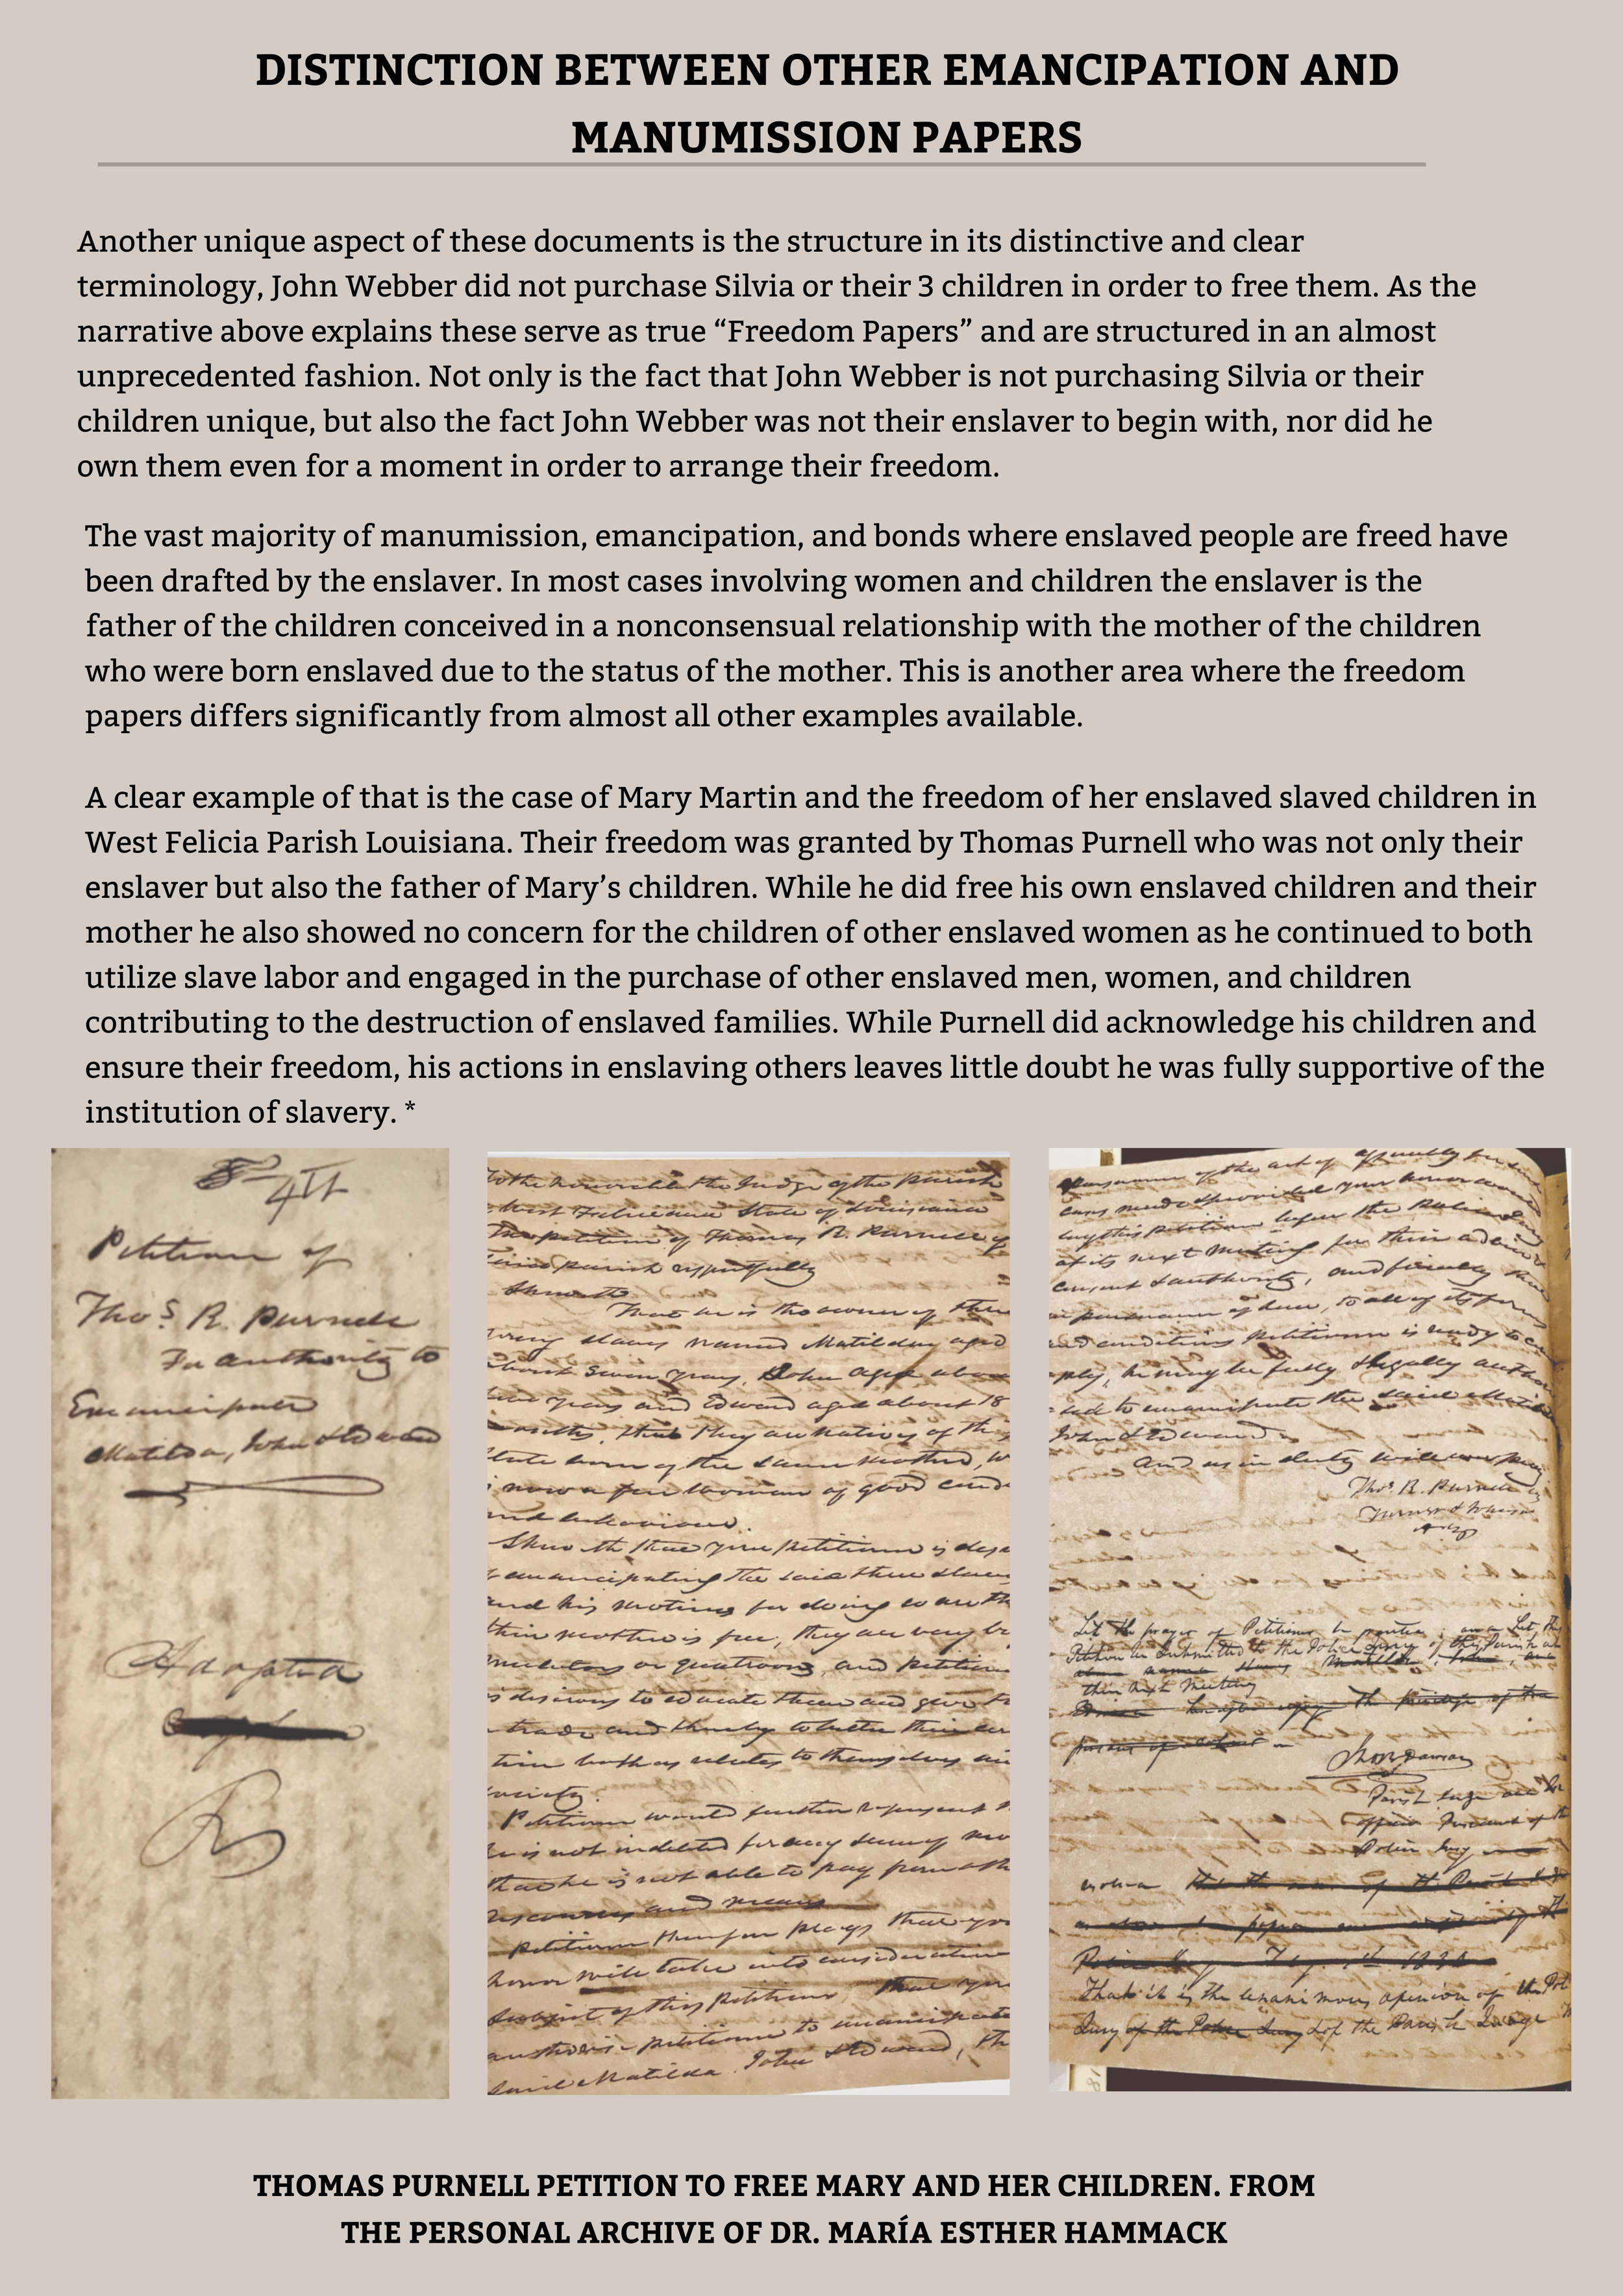 DISTINCTION BETWEEN OTHER EMANCIPATION AND
MANUMISSION PAPERS
Another unique aspect of these documents is the structure in its distinctive and clear
terminology, John Webber did not purchase Silvia or their 3 children in order to free them. As the
narrative above explains these serve as true “Freedom Papers” and are structured in an almost
unprecedented fashion. Not only is the fact that John Webber is not purchasing Silvia or their
children unique, but also the fact John Webber was not their enslaver to begin with, nor did he
own them even for a moment in order to arrange their freedom.
The vast majority of manumission, emancipation, and bonds where enslaved people are freed have
been drafted by the enslaver. In most cases involving women and children the enslaver is the
father of the children conceived in a nonconsensual relationship with the mother of the children
who were born enslaved due to the status of the mother. This is another area where the freedom
papers differs significantly from almost all other examples available.
A clear example of that is the case of Mary Martin and the freedom of her enslaved slaved children in
West Felicia Parish Louisiana. Their freedom was granted by Thomas Purnell who was not only their
enslaver but also the father of Mary’s children. While he did free his own enslaved children and their
mother he also showed no concern for the children of other enslaved women as he continued to both
utilize slave labor and engaged in the purchase of other enslaved men, women, and children
contributing to the destruction of enslaved families. While Purnell did acknowledge his children and
ensure their freedom, his actions in enslaving others leaves little doubt he was fully supportive of the
institution of slavery. *
Petition of
Thos. R. Purnell
For authority to
Emancipate
Matilda, John & Edward
Adopted
To the honorable the Judge of the Parish
West Feliciana State of Louisiana
The petition of Thomas R. Purnell of
said parish respectfully
Sheweth
That he is the owner of three
young slaves named Matilda aged
about seven years, John aged about
years and Edward aged about 18
months, that they are natives of this
State born of the same mother, w
now a free woman of good cond
and behaviour.
Sheweth that your petitioner is desi
emancipating the said three slaves
and his motives for doing so are th
their mother is free, they are very br
mulattoes or quatroons, and petition
is desirous to educate them and give th
trade and thereby to better their con
tion both as relates to themselves an
society.
Petitioner would further represent
he is not indebted for any sum of mo
that he is not able to pay from oth
resources and means
Petitioner therefore prays that yo
honor will take into consideration
subject of this petition, that you
authorise petitioner to emancipate
said Matilda John & Edward, th
lay this petition before the Police Jury
at its next meeting for their advice
consent & authority, and finally that
in pursuance of law, to all of its forms
and conditions petitioner is ready to com
ply, he may be fully & legally author
ised to emancipate the said Matilda
John & Edward
And as in duty will ever pray
Thos. R. Purnell by
Turner &
Atty
Let the prayer of Petitioner be granted, and Let this
Petition be submitted to the Police Jury of this Parish at
their next Meeting
Parish Judge and
officio President of the
Police Jury
That it is the unanimous opinion of the Pol
Jury of the Police Jury & of the Parish Judge
THOMAS PURNELL PETITION TO FREE MARY AND HER CHILDREN. FROM
THE PERSONAL ARCHIVE OF DR. MARÍA ESTHER HAMMACK